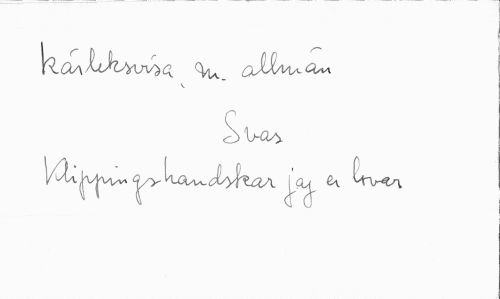 kärleksvisa, m. allmän
Svas
Klippingshandskar jag er lovar